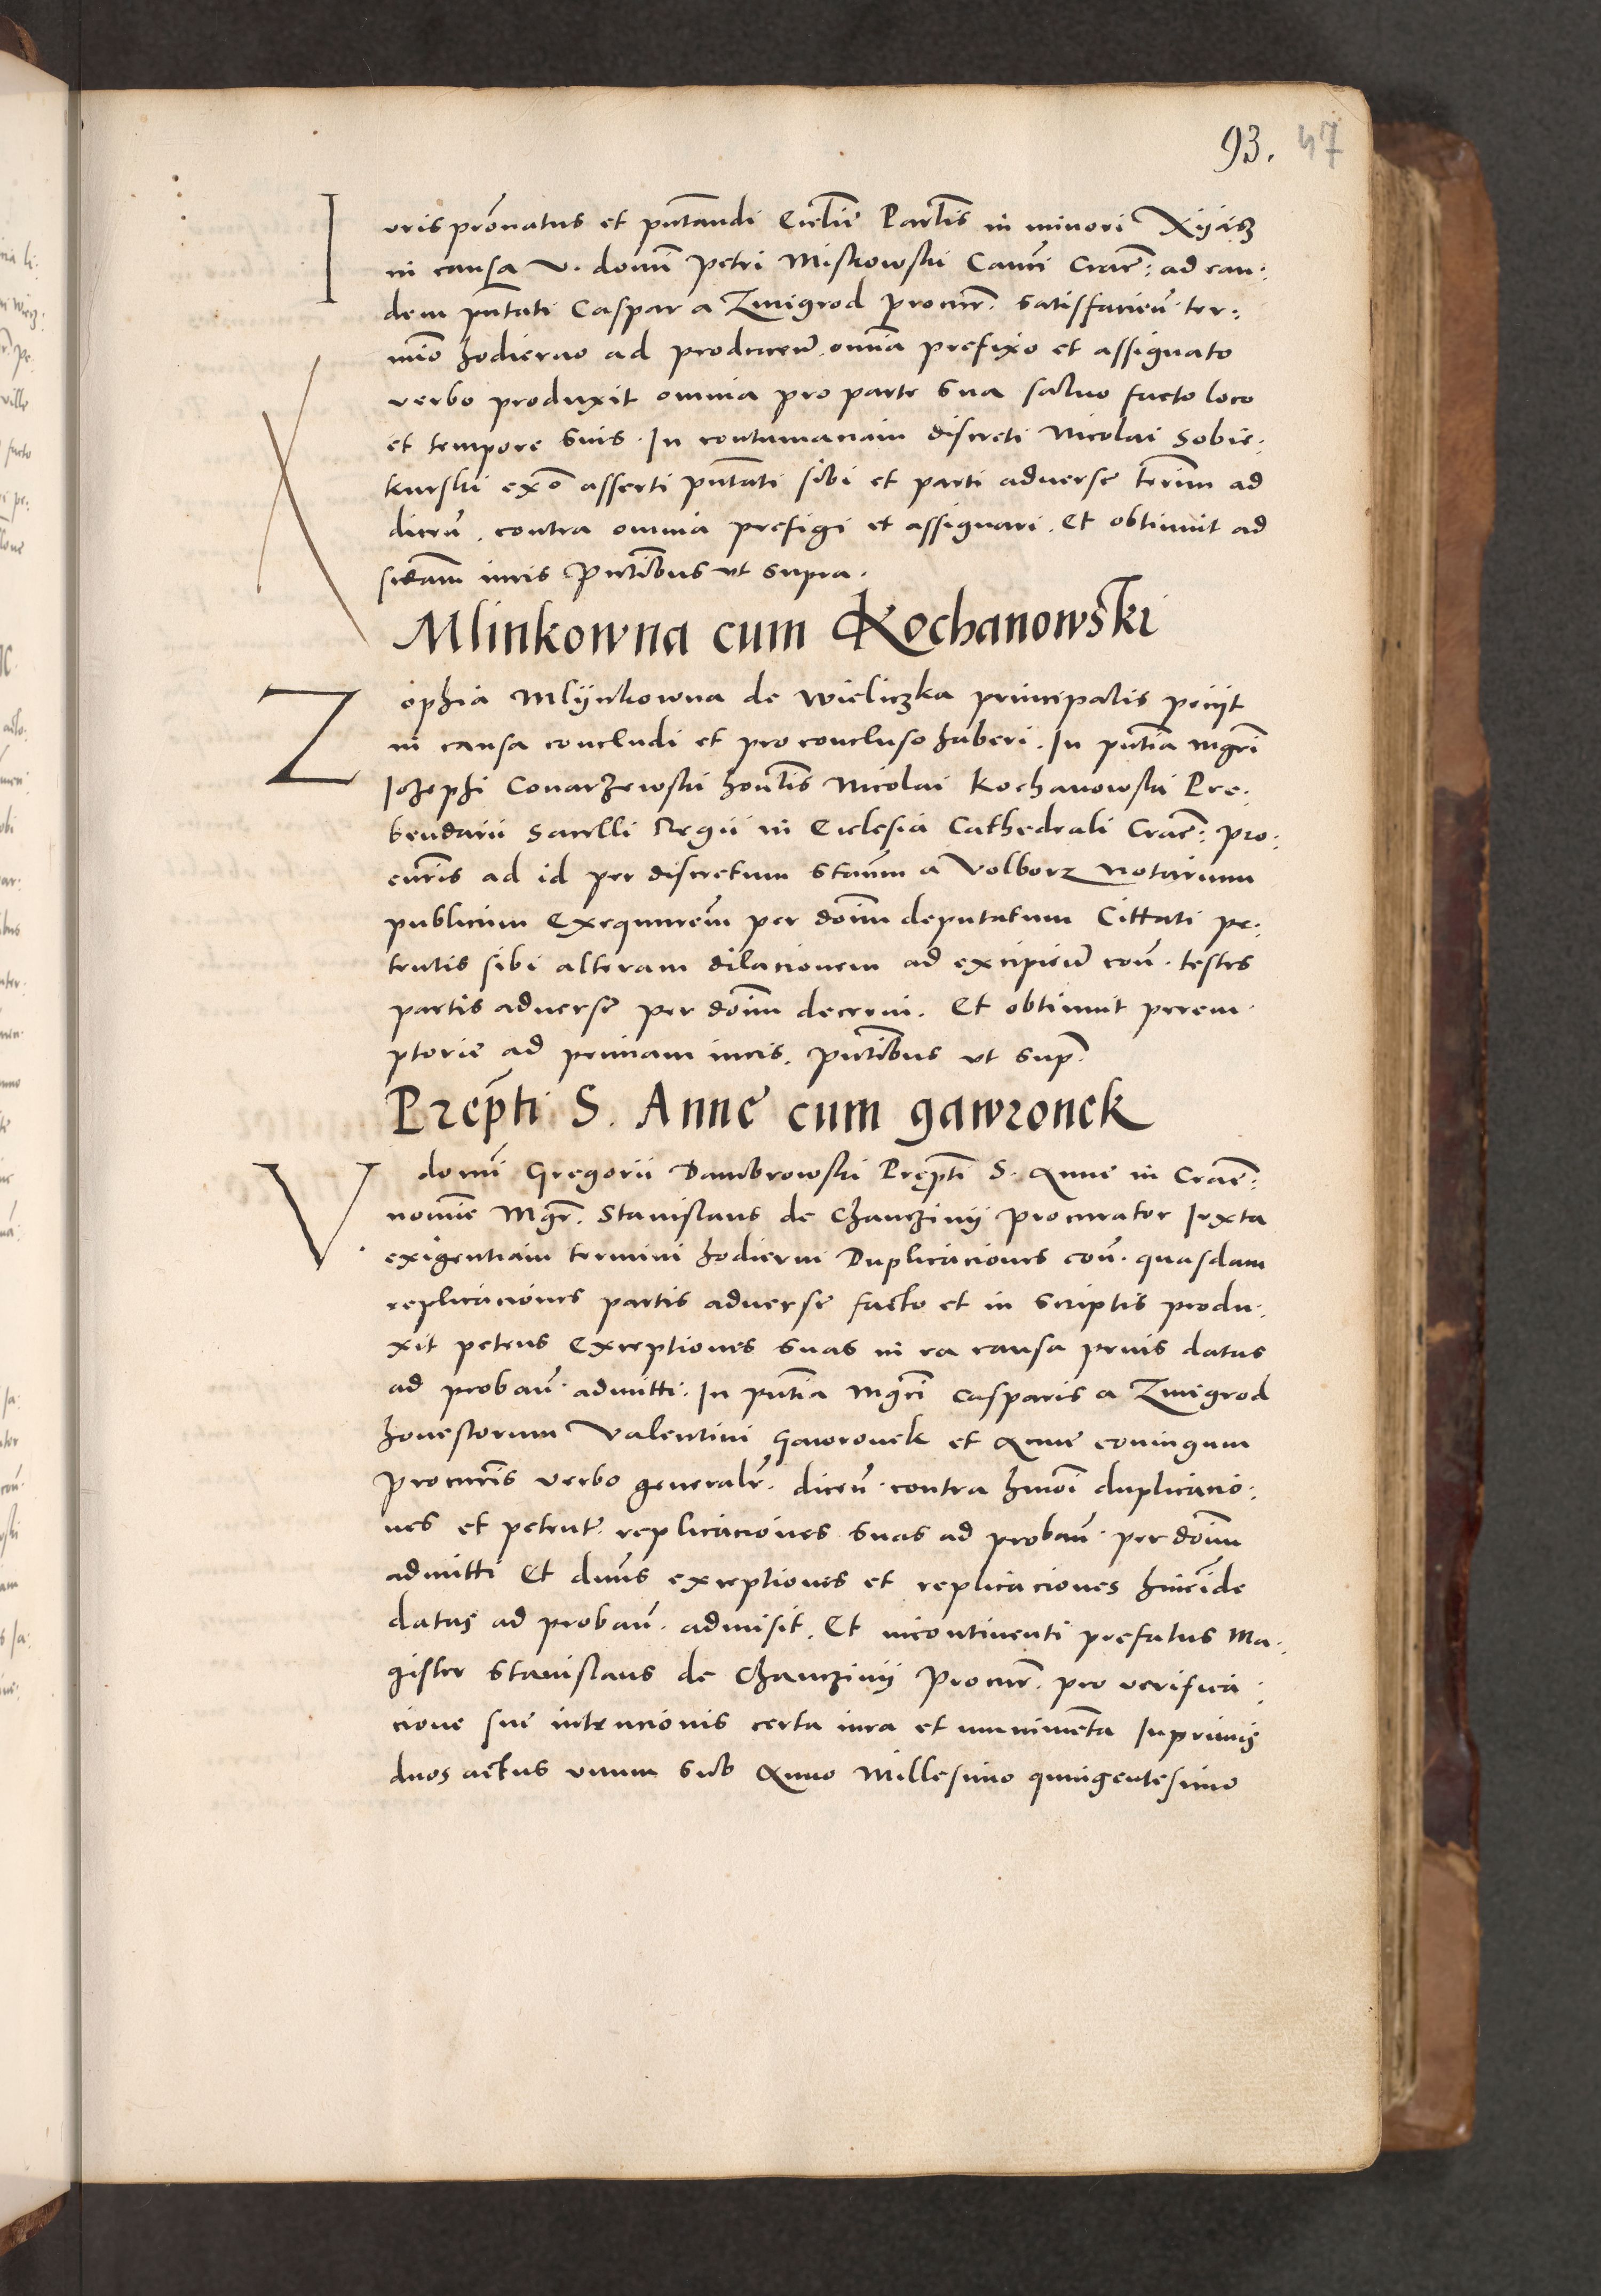 93. 47
Iuris pronatus et pntandi Ecclie Partis in minori Xyasz
in causa V. domi Petri Miskowski Canci Crac: ad ean:
dem pntati Caspar a Zmigrod procur. satisfacien ter:
mio hodierno ad producen. omnia prefixo et assignato
verbo produxit omnia pro parte sua saluo facto loco
et tempore suis. In contumaciam discreti Nicolai Sobie:
kurski ex o asserti pntati sibi et parti aduerse termin ad
dicen. contra omnia prefigi et assignari. Et obtinuit ad
iuris pntibus ut supra.
Mlinkowna cum Kochanowski
Zophia Mlynkowna de Wieliczka principalis peciit
in causa concludi et pro concluso haberi. In pntia mgri
Iozephi Conarzewski hontis Nicolai Kochanowski Pre:
bendarii Sacelli Regii in Ecclesia Cathedrali Crac: pro:
curis ad id per discretum Staum a Volborz Notarium
publicum Exequutem per doim deputatum Cittati pe:
tentis sibi alteram dilacionem ad excipien con. testes
partis aduerse per doim decerni. Et obtinuit perem:
ptorie ad primam iuris. pntibus ut sup.
Prepti S. Anne cum gawronek
V. domi Gregorii Dambrowski Prepti S. Anne in Crac:
nomie Mgr. Stanislaus de Chanczinij procurator Iuxta
exigentiam termini hodierni Duplicaciones con. quasdam
replicaciones partis aduerse facto et in scriptis produ:
xit petens Exceptiones suas in ea causa prius datas
ad proban. admitti. In pntia mgri Casparis a Zmigrod
honestorum Valentini Gawronek et Anne coniugum
procuris verbo generalr. dicen. contra hmoi duplicacio:
nes et petent. replicaciones suas ad proban. per doim
admitti Et dnus exceptiones et replicaciones hincinde
datas ad proban. admisit. Et incontinenti prefatus Ma:
gister Stanislaus de Chanczinij Procur. pro verifica:
cione sue intencionis certa iura et munimenta Inprimis
duos actus unum sub Anno Millesimo quingentesimo